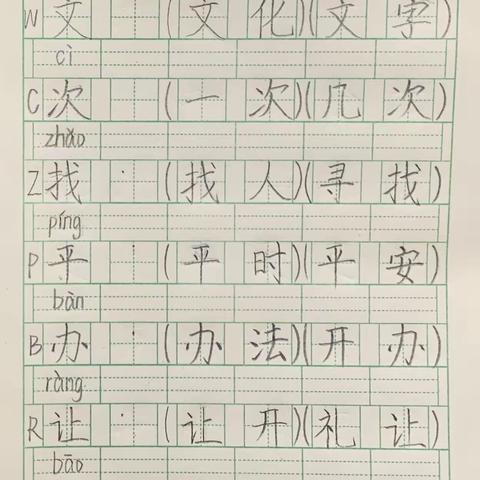 W 文 (文化)(文字)
cì
C 次 (一次)(几次)
zhǎo
Z 找 (找人)(寻找)
píng
P 平 (平时)(平安)
bàn
B 办 (办法)(开办)
ràng
R 让 (让开)(礼让)
bāo